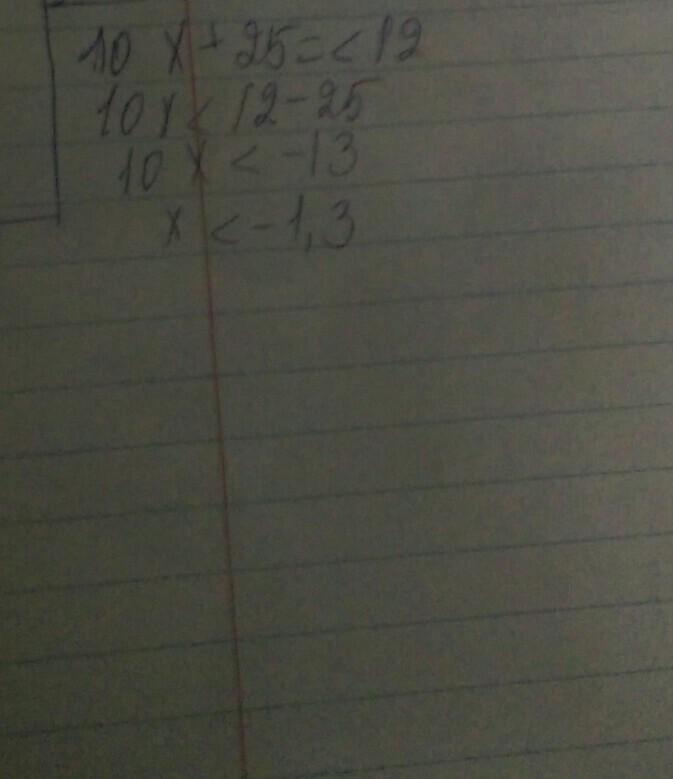 10 x + 25 = < 12
10x < 12 - 25
10 x < -13
x < -1,3